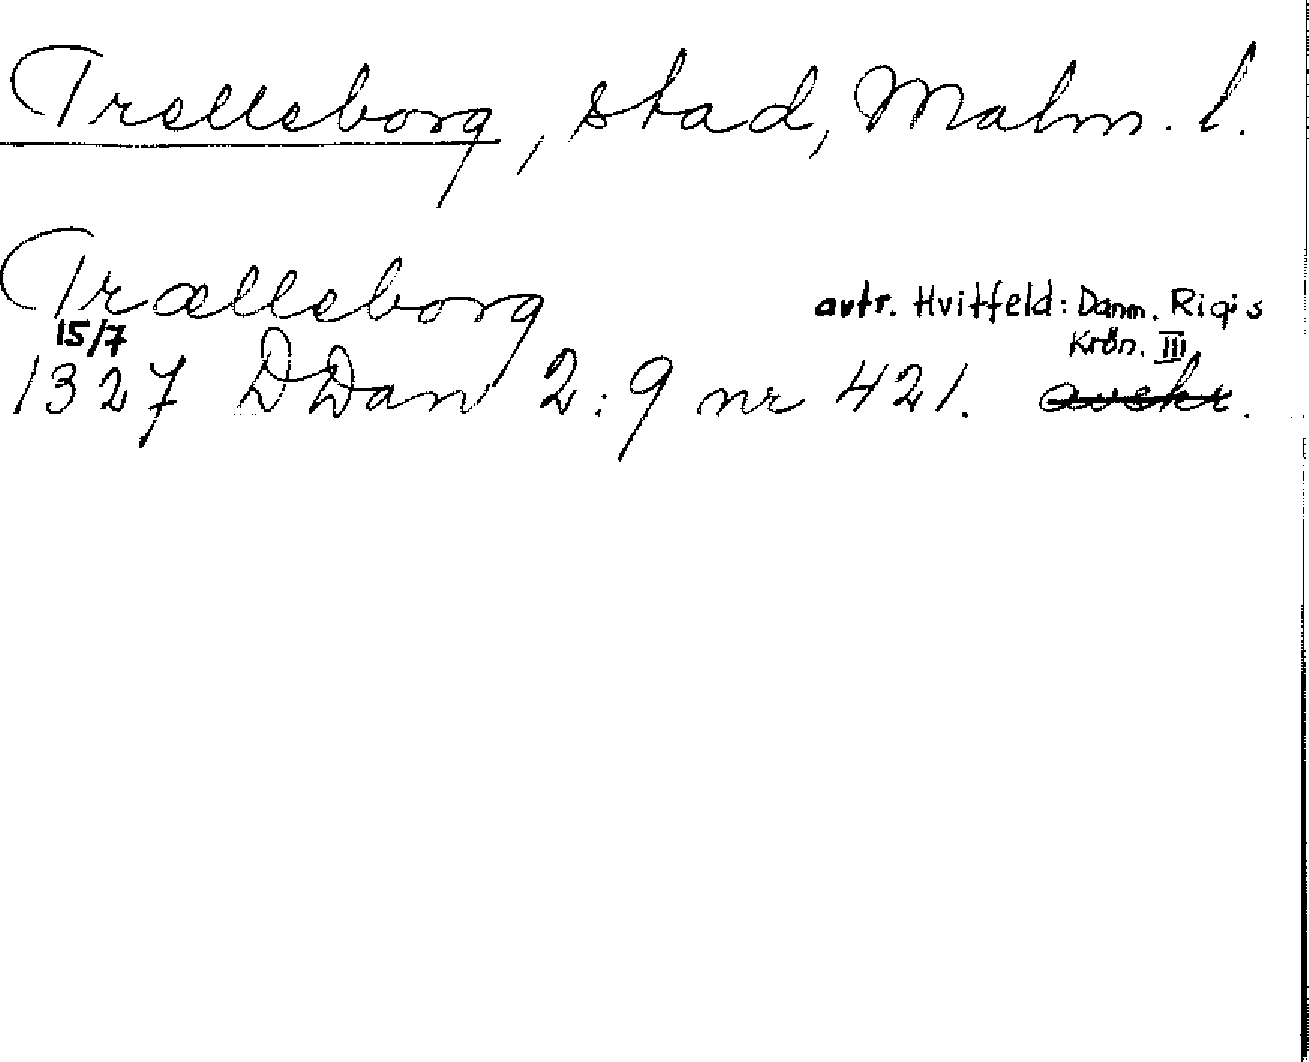 Trelleborg, stad, Malm. l.
Trælleborg
avtr. Hvitfeld: Danm. Rigis
Krön. III
15/7
1327 DDan 2:9 nr 421. avskr.